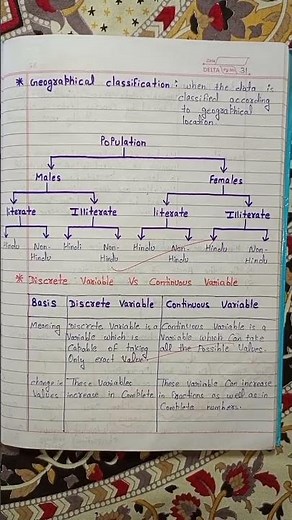 DATE
DELTA Pg No. 31
* Geographical classification : when the data is
classified according
to geographical
location.
Population
Males Females
literate Illiterate literate Illiterate
Hindu Non- Hindi Non- Hindu Non- Hindu Non-
Hindu Hindu Hindu Hindu
* Discrete Variable Vs Continuous Variable
Basis Discrete Variable Continuous Variable
Meaning Discrete Variable is a Continuous Variable is a
Variable which is Variable which Can take
Capable of taking all the Possible Values.
Only exact Value
change in These Variables These Variable Can increase
Values increase in Complete in fractions as well as in
Complete numbers.